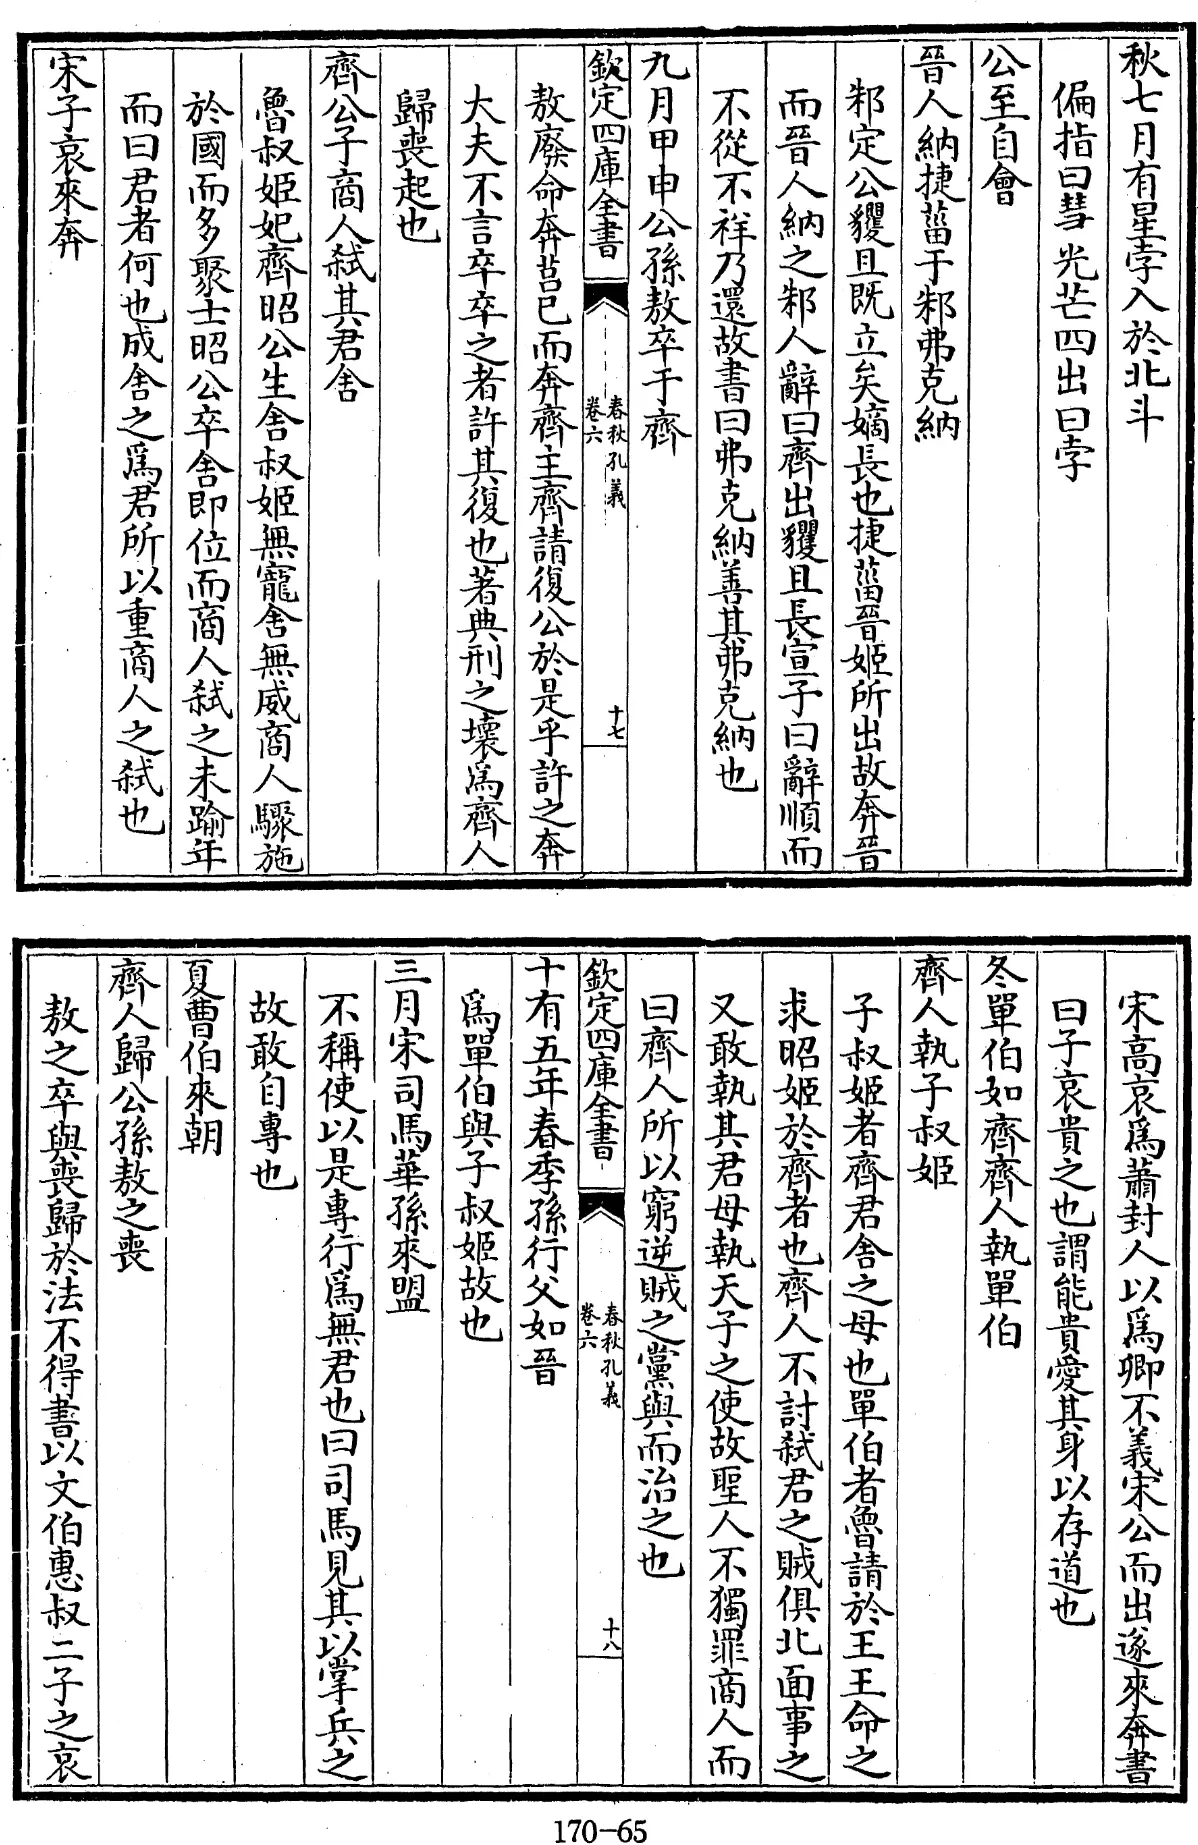 秋七月有星孛入於北斗
偏指曰彗光芒四出曰孛
公至自會
晉人納捷菑于邾弗克納
邾定公貜且既立矣嫡長也捷菑晉姬所出故奔晉
而晉人納之邾人辭曰齊出貜且長宣子曰辭順而
不從不祥乃還故書曰弗克納善其弗克納也
九月甲申公孫敖卒于齊
欽定四庫全書
春秋孔義
卷六
十七
敖廢命奔莒已而奔齊主齊請復公於是乎許之奔
大夫不言卒卒之者許其復也著典刑之壞爲齊人
歸喪起也
齊公子商人弑其君舍
魯叔姬妃齊昭公生舍叔姬無寵舍無威商人驟施
於國而多聚士昭公卒舍即位而商人弑之未踰年
而曰君者何也成舍之爲君所以重商人之弑也
宋子哀來奔
宋高哀爲蕭封人以爲卿不義宋公而出遂來奔書
曰子哀貴之也謂能貴愛其身以存道也
冬單伯如齊齊人執單伯
齊人執子叔姬
子叔姬者齊君舍之母也單伯者魯請於王王命之
求昭姬於齊者也齊人不討弑君之賊俱北面事之
又敢執其君母執天子之使故聖人不獨罪商人而
曰齊人所以窮逆賊之黨與而治之也
欽定四庫全書
春秋孔義
卷六
十八
十有五年春季孫行父如晉
爲單伯與子叔姬故也
三月宋司馬華孫來盟
不稱使以是專行爲無君也曰司馬見其以掌兵之
故敢自專也
夏曹伯來朝
齊人歸公孫敖之喪
敖之卒與喪歸於法不得書以文伯惠叔二子之哀
170-65